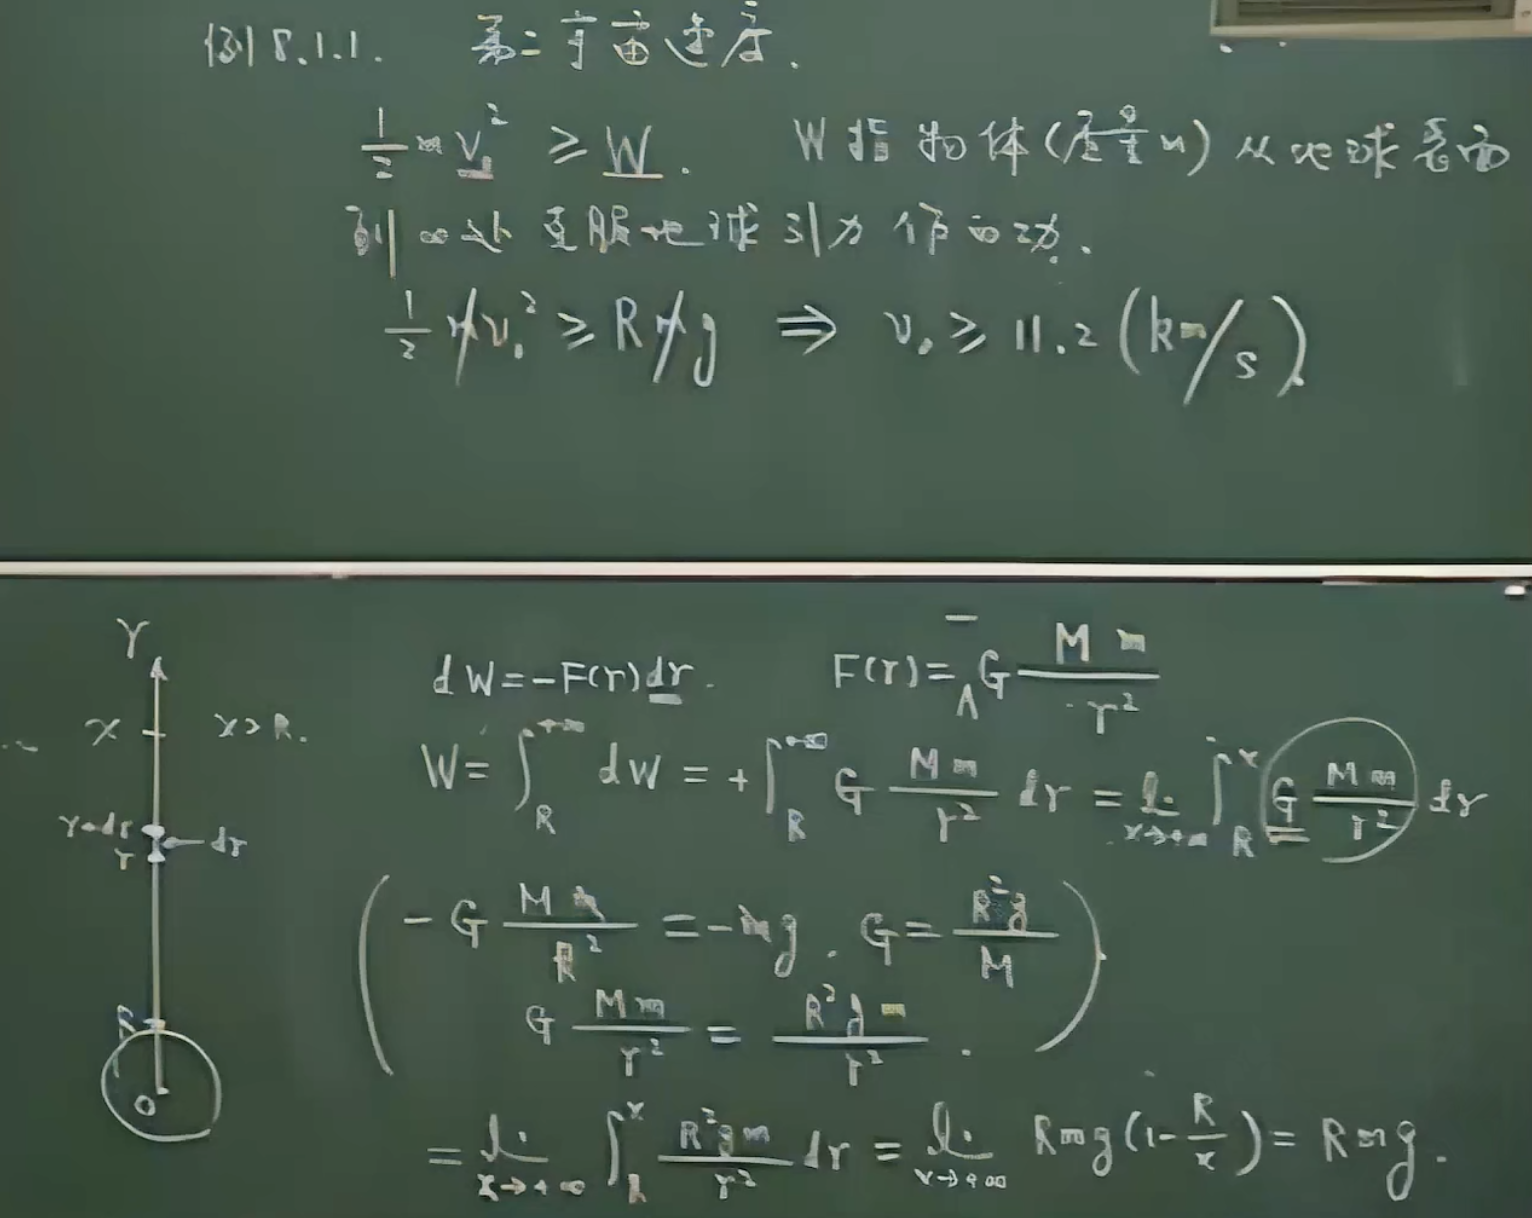 例8.1.1. 第二宇宙速度.
½mv₀² ≥ W. W指物体(质量m)从地球表面
到∞处克服地球引力作的功.
½mv₀² ≥ Rmg ⇒ v₀ ≥ 11.2 (km/s).
r
x x>R.
r+dr
r dr
R
O
dW = -F(r)dr. F(r) = -G Mm/r²
W = ∫_R^{+∞} dW = +∫_R^{+∞} G Mm/r² dr = lim_{x→+∞} ∫_R^x G Mm/r² dr
( -G Mm/R² = -mg. G = R²g/M
G Mm/r² = R²gm/r². )
= lim_{x→+∞} ∫_R^x R²gm/r² dr = lim_{x→+∞} Rmg(1-R/x) = Rmg.